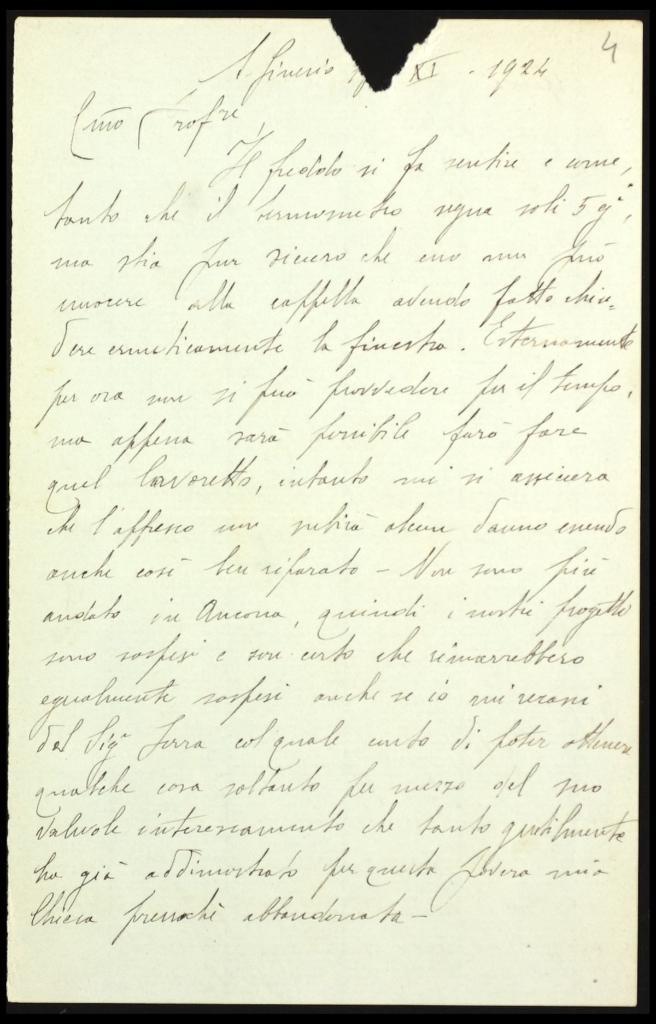 4
S. Ginesio XI - 1924
Cmo Profre,
Il freddo si fa sentire e come,
tanto che il termometro segna soli 5 gi,
ma stia pur sicuro che esso non può
nuocere alla cappella avendo fatto chiu=
dere ermeticamente la finestra. Esternamente
per ora non si può provvedere pel il tempo,
ma appena sarà possibile farò fare
quel lavoretto, intanto mi si assicura
che l'affresco non subirà alcun danno essendo
anche così ben riparato - Non sono più
andato in Ancona, quindi i nostri progetti
sono sospesi e son certo che rimarrebbero
egualmente sospesi anche se io mi recassi
dal Sigr Serra col quale conto di poter ottenere
qualche cosa soltanto per mezzo del suo
valevole interessamento che tanto gentilmente
ha già addimostrato per questa povera mia
Chiesa pressochè abbandonata -